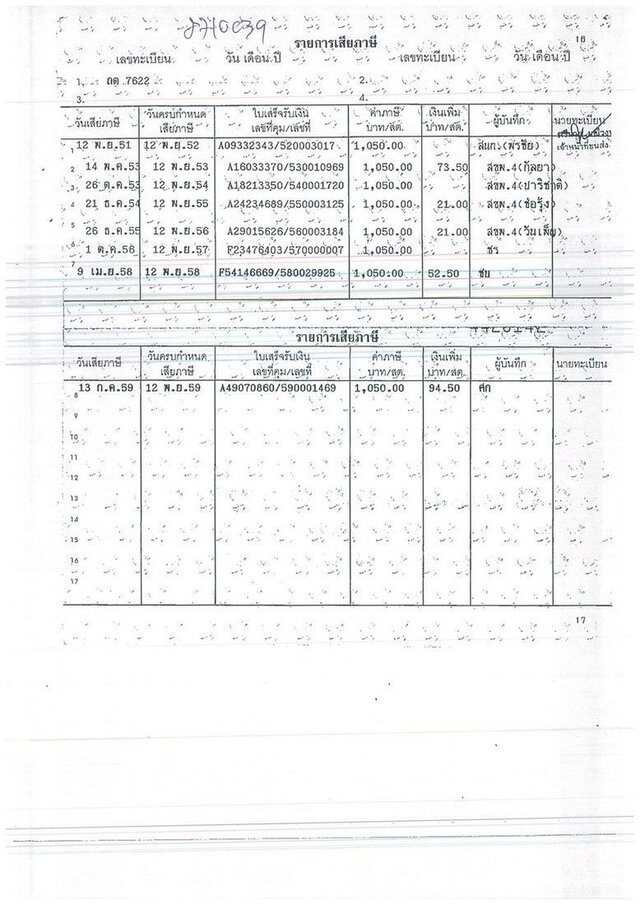 รายการเสียภาษี
เลขทะเบียน วัน เดือน ปี เลขทะเบียน วัน เดือน ปี
1. ถต 7622 2.
3. 4.
วันเสียภาษี วันครบกำหนดเสียภาษี ใบเสร็จรับเงิน เลขที่คุม/เลขที่ ค่าภาษี บาท/สต. เงินเพิ่ม บาท/สต. ผู้บันทึก นายทะเบียน
1 12 พ.ย.51 12 พ.ย.52 A09332343/520003017 1,050.00
เจ้าหน้าที่ขนส่ง
2 14 พ.ค.53 12 พ.ย.53 A16033370/530010969 1,050.00 73.50 สขพ.4(กัลยา)
3 26 ต.ค.53 12 พ.ย.54 A18213350/540001720 1,050.00 สขพ.4(ปาริชาติ)
4 21 ธ.ค.54 12 พ.ย.55 A24234689/550003125 1,050.00 21.00 สขพ.4(ช่อรุ้ง)
5 26 ธ.ค.55 12 พ.ย.56 A29015626/560003184 1,050.00 21.00 สขพ.4(วันเพ็ญ)
6 1 ต.ค.56 12 พ.ย.57 F23476403/570000007 1,050.00
7 9 เม.ย.58 12 พ.ย.58 F54146669/580029925 1,050.00 52.50 ชย
รายการเสียภาษี
วันเสียภาษี วันครบกำหนดเสียภาษี ใบเสร็จรับเงิน เลขที่คุม/เลขที่ ค่าภาษี บาท/สต. เงินเพิ่ม บาท/สต. ผู้บันทึก นายทะเบียน
8 13 ก.ค.59 12 พ.ย.59 A49070860/590001469 1,050.00 94.50 ศก
9
10
11
12
13
14
15
16
17
17